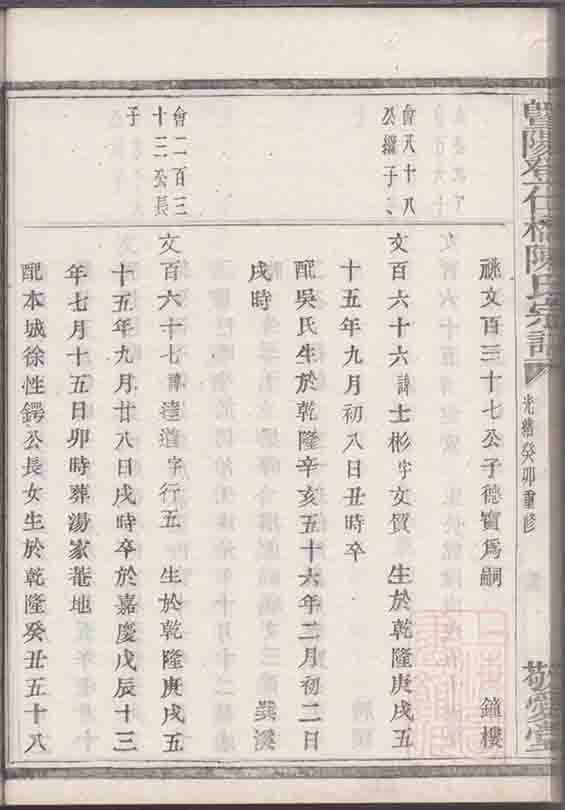 暨陽登仕橋陳氏宗譜
光緒癸卯重修
敬愛堂
祧文百三十七公子德寶爲嗣 鐘樓
會八十八
公繼子
文百六十六諱士彬字文質 生於乾隆庚戌五
十五年九月初八日丑時卒
配吳氏生於乾隆辛亥五十六年二月初二日
戌時 巽溪
會二百三
十三公長
子
文百六十七諱達道字行五 生於乾隆庚戌五
十五年九月廿八日戌時卒於嘉慶戊辰十三
年七月十五日卯時葬湯家菴地
配本城徐性鍔公長女生於乾隆癸丑五十八